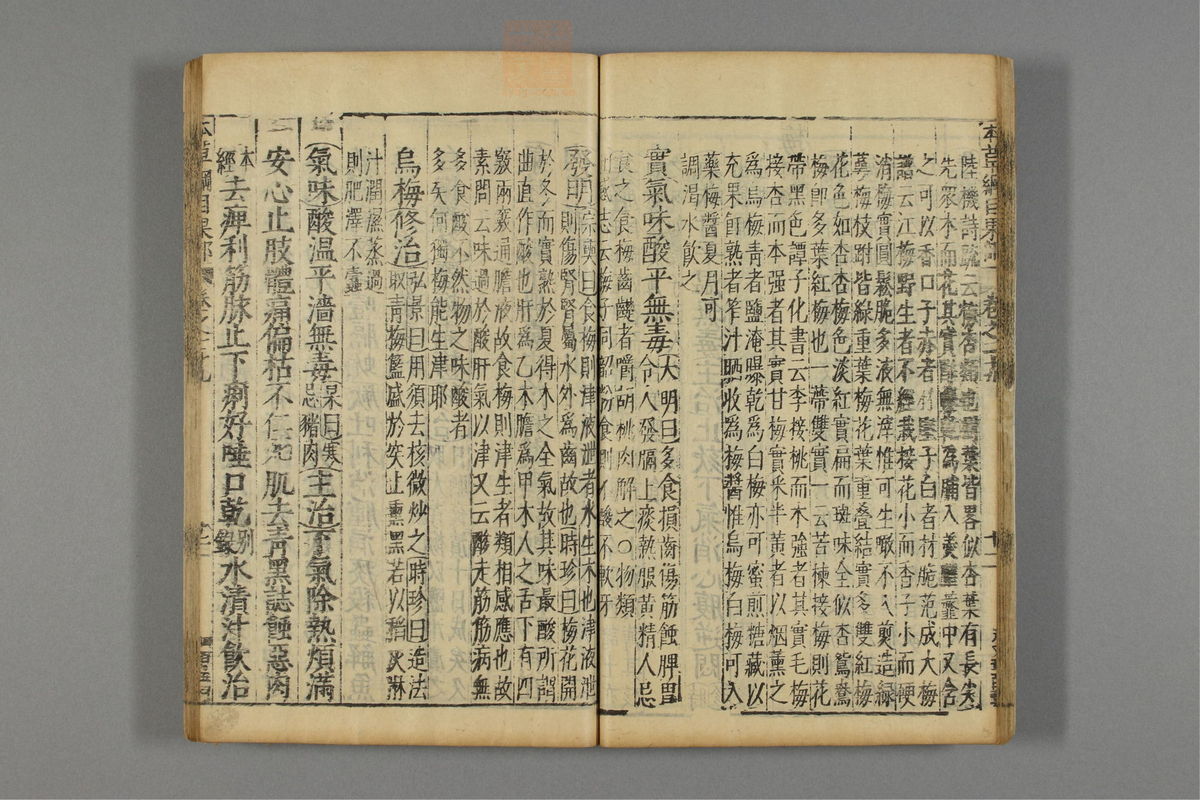 陸機詩疏云梅杏類也樹葉皆畧似杏葉有長尖
先眾木而花其實酢曝乾為脯入羹臛虀中又含
之可以香口子赤者材堅子白者材脆范成大梅
譜云江梅野生者不經栽接花小而香子小而硬
消梅實圓鬆脆多液無滓惟可生啖不入煎造綠
萼梅枝跗皆綠重葉梅花葉重疊結實多雙紅梅
花色如杏杏梅色淡紅實扁而斑味全似杏鴛鴦
梅即多葉紅梅也一蒂雙實一云苦楝接梅則花
帶黑色譚子化書云李接桃而本強者其實毛梅
接杏而本强者其實甘梅實采半黃者以烟薰之
為烏梅青者鹽淹曝乾為白梅亦可蜜煎糖藏以
充果飣熟者笮汁晒收為梅醬惟烏梅白梅可入
藥梅醬夏月可
調渴水飲之
實氣味酸平無毒大明曰多食損齒傷筋蝕脾胃
令人發膈上痰熱服黃精人忌
食之食梅齒齼者嚼胡桃肉解之○物類
感志云梅子同韶粉食則不酸不軟牙
發明宗奭曰食梅則津液泄者水生木也津液泄
則傷腎腎屬水外為齒故也時珍曰梅花開
於冬而實熟於夏得木之全氣故其味最酸所謂
曲直作酸也肝為乙木膽為甲木人之舌下有四
竅兩竅通膽液故食梅則津生者類相感應也故
素問云味過於酸肝氣以津又云酸走筋筋病無
多食酸不然物之味酸者
多矣何獨梅能生津耶
烏梅修治弘景曰用須去核微炒之時珍曰造法
取青梅籃盛於突上熏黑若以稻灰淋
汁潤濕蒸過
則肥澤不蠹
氣味酸溫平濇無毒杲曰寒
忌豬肉主治下氣除熱煩滿
安心止肢體痛偏枯不仁死肌去青黑誌蝕惡肉
本
經去痺利筋脉止下痢好唾口乾別
錄水漬汁飲治